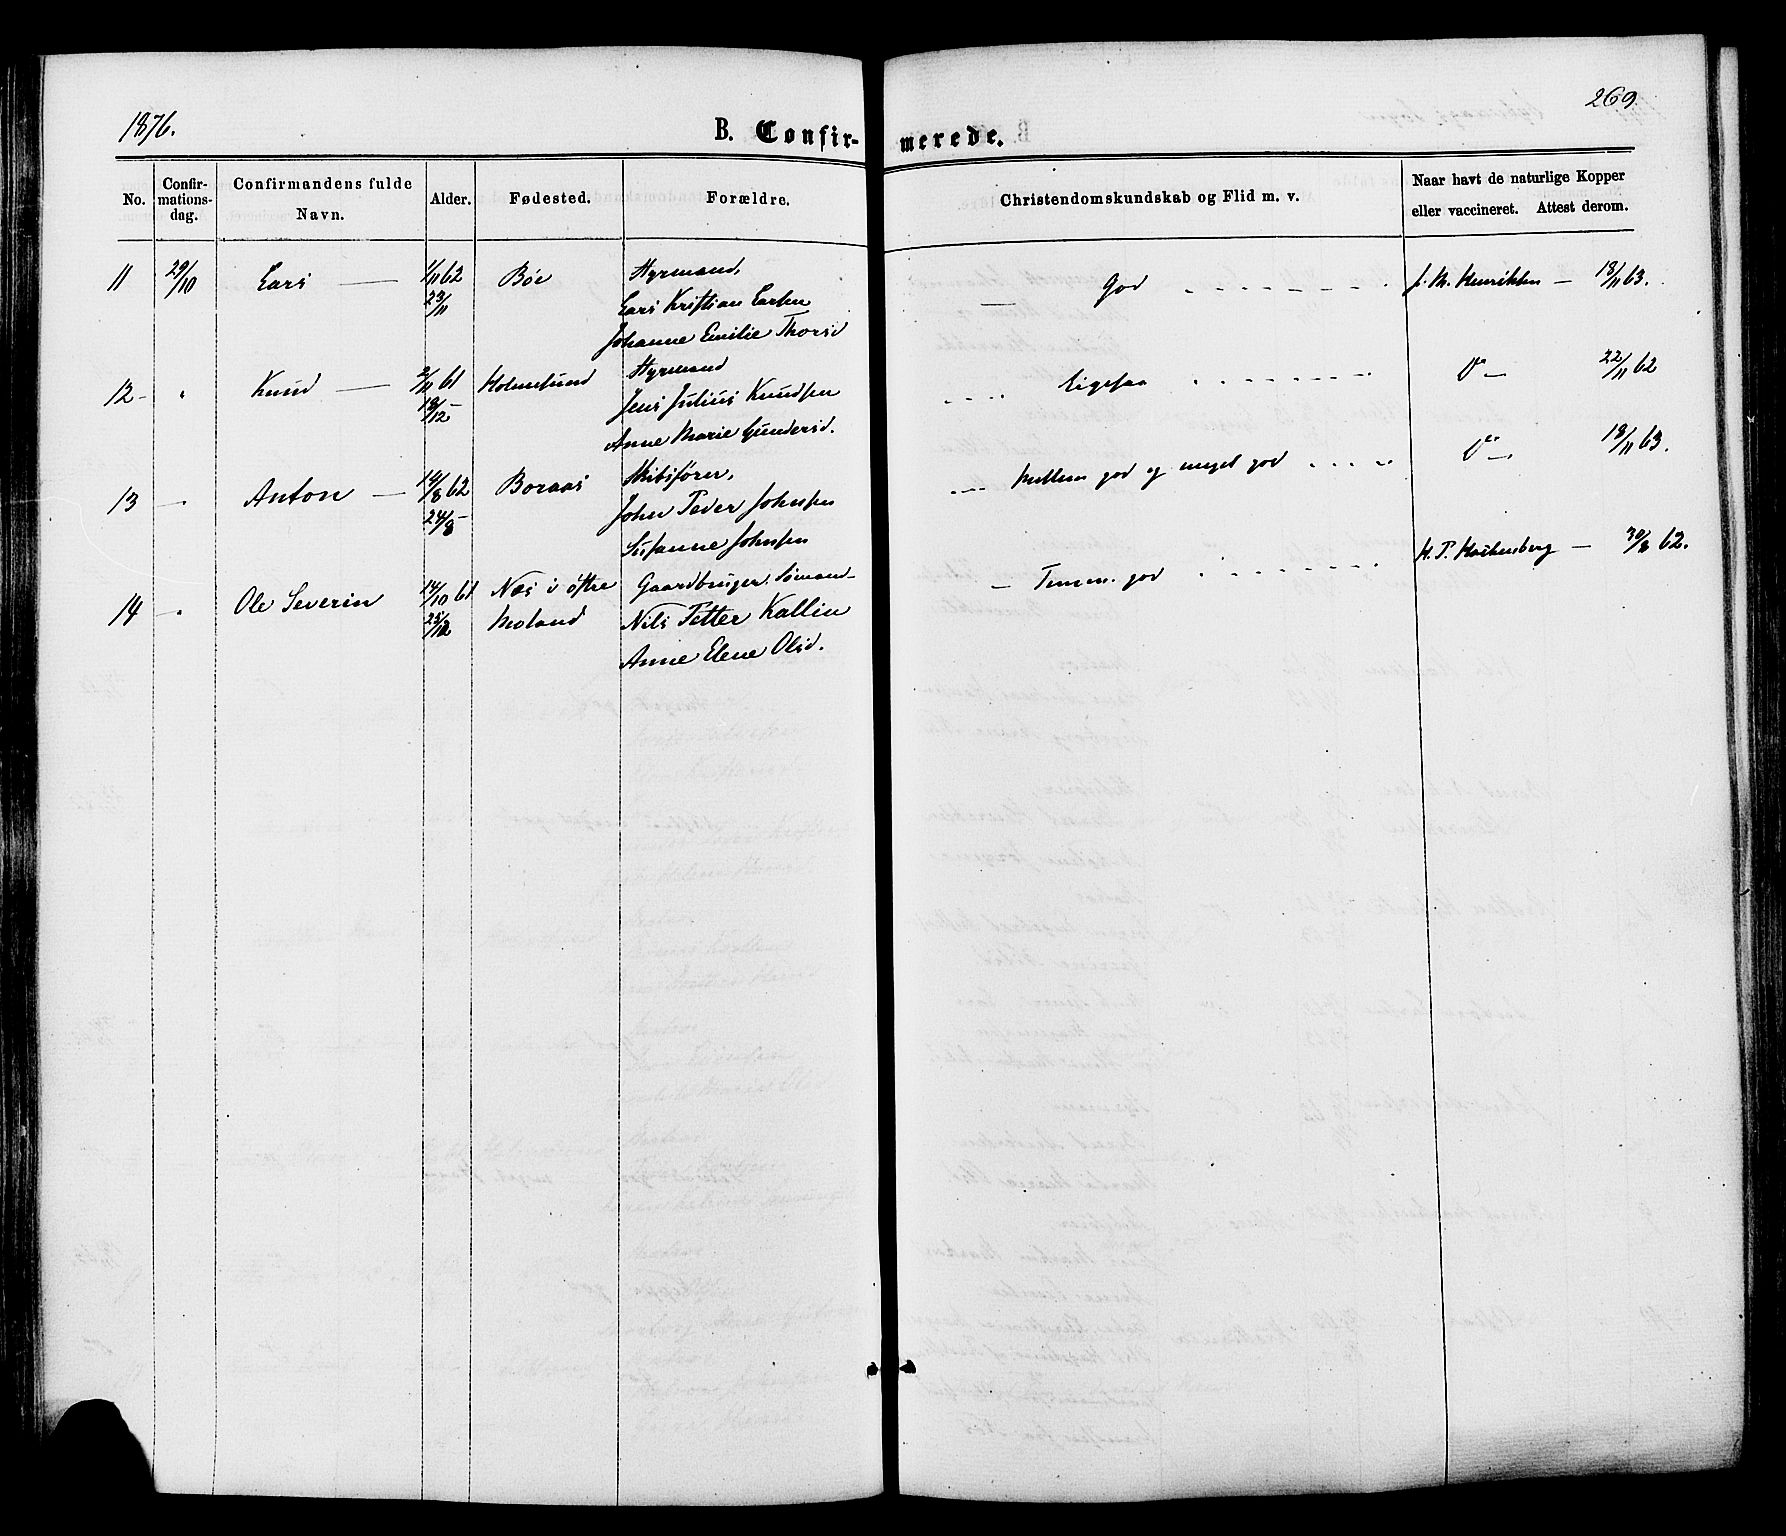 1876.
269
B. Confir-
merede.
No.
Confir-
mations-
dag.
Confirmandens fulde
Navn.
Alder.
Fødested.
Forældre.
Christendomskundskab og Flid m. v.
Naar havt de naturlige Kopper
eller vaccineret. Attest derom.
11 29/10 Lars — 1/11 62 Bøe Styrmand, God J. M. Henriksen — 18/11 63.
23/11 Lars Kristian Larsen
Johanne Emilie Thorsd
12 - " Knud — 2/11 61 Holmesund Styrmand Ligesaa Do — 22/11 62
18/12 – Jens Julius Knudsen
Anne Marie Gundersd.
13 — " Anton — 14/8 62 Boraas Skibsfører, Mellem god og meget god Do — 18/11 63.
24/8 – John Peder Johnsen
Susanne Johnsen
14 — " Ole Severin 14/10 61 Næs i østre Gaardbruger, Sømand - Temm. god H. T. — 30/8 62.
25/12 Moland Nils Petter Kallin
Anne Elene Olsd.